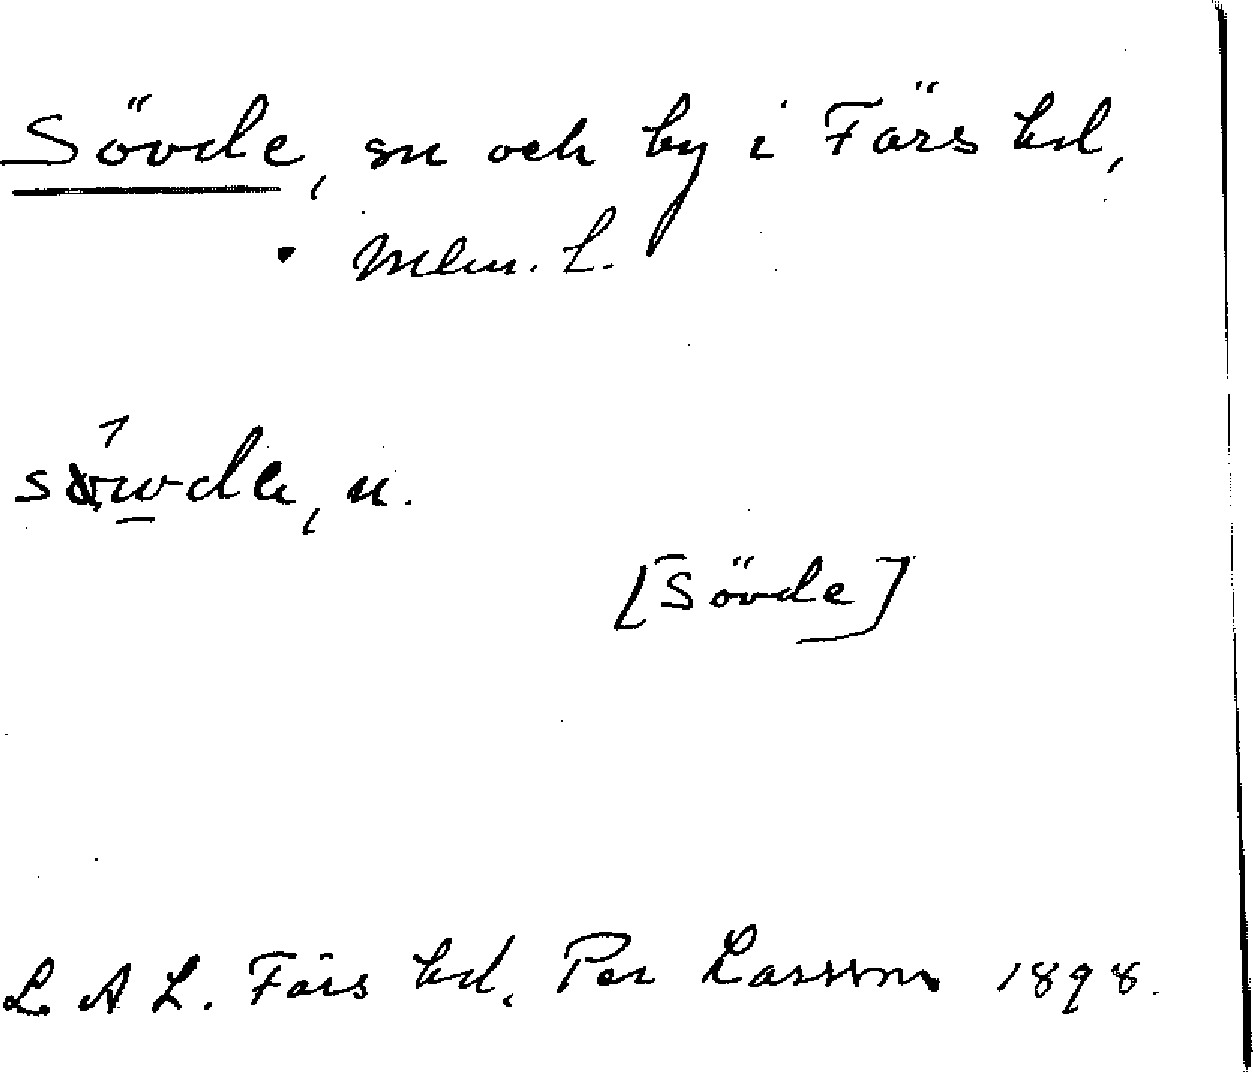 Sövde, sn och by i Färs hd,
Mlm. L.
n.
[Sövde]
L A L. Färs hd, Per Larsson 1898.